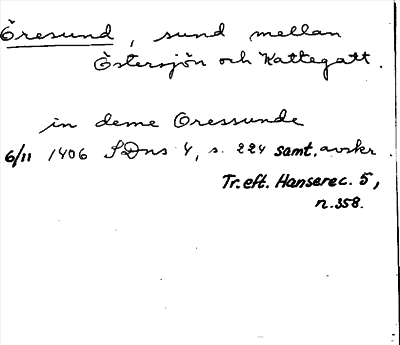 Öresund, sund mellan
Östersjön och Kattegatt.
in deme Oressunde
6/11 1406 SDns 4, s. 224 samt. avskr.
Tr. eft. Hanserec. 5,
n. 358.